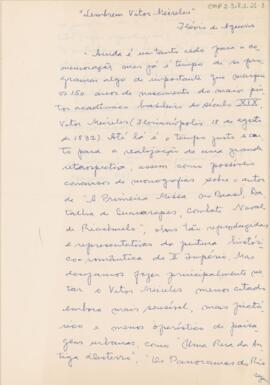 "Lembrem Vitor Meireles"
Flávio de Aquino
Ainda é um tanto cedo para a co-
memoração mas já é tempo de se pro-
gramar algo de importante que marque
os 150 anos de nascimento do maior pin-
tor acadêmico brasileiro do século XIX,
Vitor Meireles (Florianópolis, 18 de agosto
de 1832). Até lá é o tempo justo e cer-
to para a realização de uma grande
retrospectiva, assim como possíveis
concursos de monografias sobre o autor
de "A Primeira Missa no Brasil, Ba-
talha de Guararapes, Combate Naval
de Riachuelo", obras tão reproduzidas
e representativas da pintura histó-
rico-romântica do II Império. Mas
desejamos fazer principalmente no-
tar o Vitor Meireles menos citado
embora mais sensível, mais pictó-
rico e menos operístico de paisa-
gens urbanas, como "Uma Rua da An-
tiga Desterro", "Os Panoramas do Rio